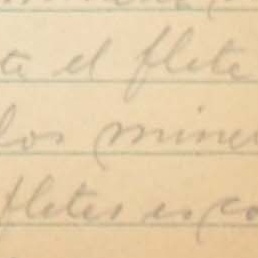 te el flete
los mine
fletes es co